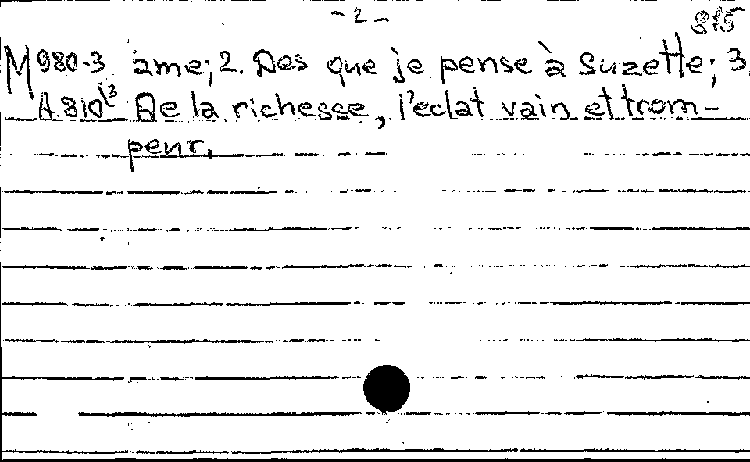 - 2 -
815
M 980-3 ame; 2. Des que je pense à Suzette; 3.
A 810 13 De la richesse, l'eclat vain et trom-
peur.